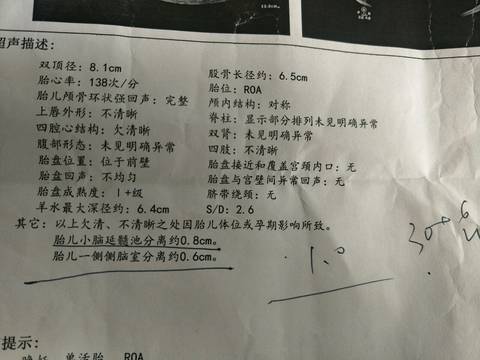 超声描述：
双顶径：8.1cm 股骨长径约：6.5cm
胎心率：138次/分 胎位：ROA
胎儿颅骨环状强回声：完整 颅内结构：对称
上唇外形：不清晰 脊柱：显示部分排列未见明确异常
四腔心结构：欠清晰 双肾：未见明确异常
腹部形态：未见明确异常 四肢：不清晰
胎盘位置：位于前壁 胎盘接近和覆盖宫颈内口：无
胎盘回声：不均匀 胎盘与宫壁间异常回声：无
胎盘成熟度：Ⅰ+级 脐带绕颈：无
羊水最大深径约：6.4cm S/D：2.6
其它：以上欠清、不清晰之处因胎儿体位或孕期影响所致。
胎儿小脑延髓池分离约0.8cm。
胎儿一侧侧脑室分离约0.6cm。
1.0
提示：
晚妊 单活胎 ROA